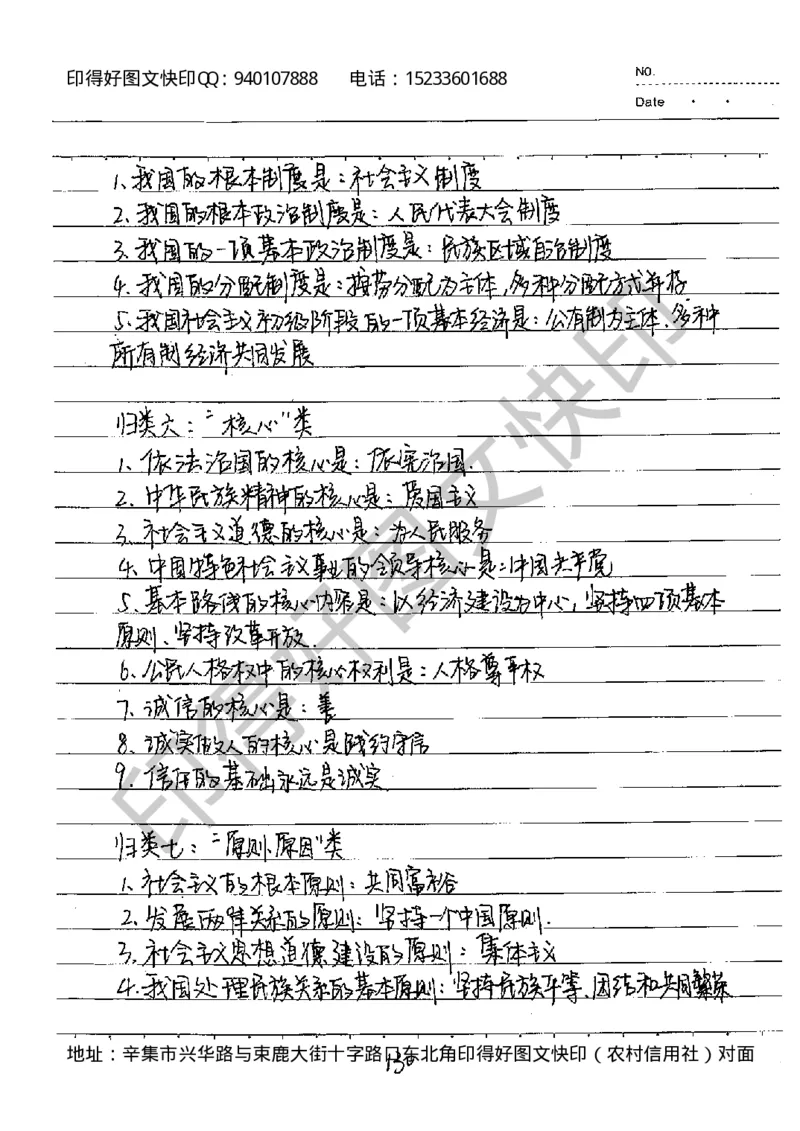 印得好图文快印QQ：940107888 电话：15233601688
NO.
Date
1、我国的根本制度是：社会主义制度
2、我国的根本政治制度是：人民代表大会制度
3、我国的一项基本政治制度是：民族区域自治制度
4、我国的分配制度是：按劳分配为主体，多种分配方式并存
5、我国社会主义初级阶段的一项基本经济是：公有制为主体、多种
所有制经济共同发展
归类六：“核心”类
1、依法治国的核心是：依宪治国.
2、中华民族精神的核心是：爱国主义
3、社会主义道德的核心是：为人民服务
4、中国特色社会主义事业的领导核心是：中国共产党
5、基本路线的核心内容是：以经济建设为中心，坚持四项基本
原则、坚持改革开放.
6、公民人格权中的核心权利是：人格尊严权
7、诚信的核心是：善
8、诚实做人的核心是践约守信
9、信任的基础永远是诚实
归类七：“原则、原因”类
1、社会主义的根本原则：共同富裕
2、发展两岸关系的原则：坚持一个中国原则.
3、社会主义思想道德建设的原则：集体主义
4、我国处理民族关系的基本原则：坚持民族平等、团结和共同繁荣
地址：辛集市兴华路与束鹿大街十字路口东北角印得好图文快印（农村信用社）对面
130
印得好图文快印